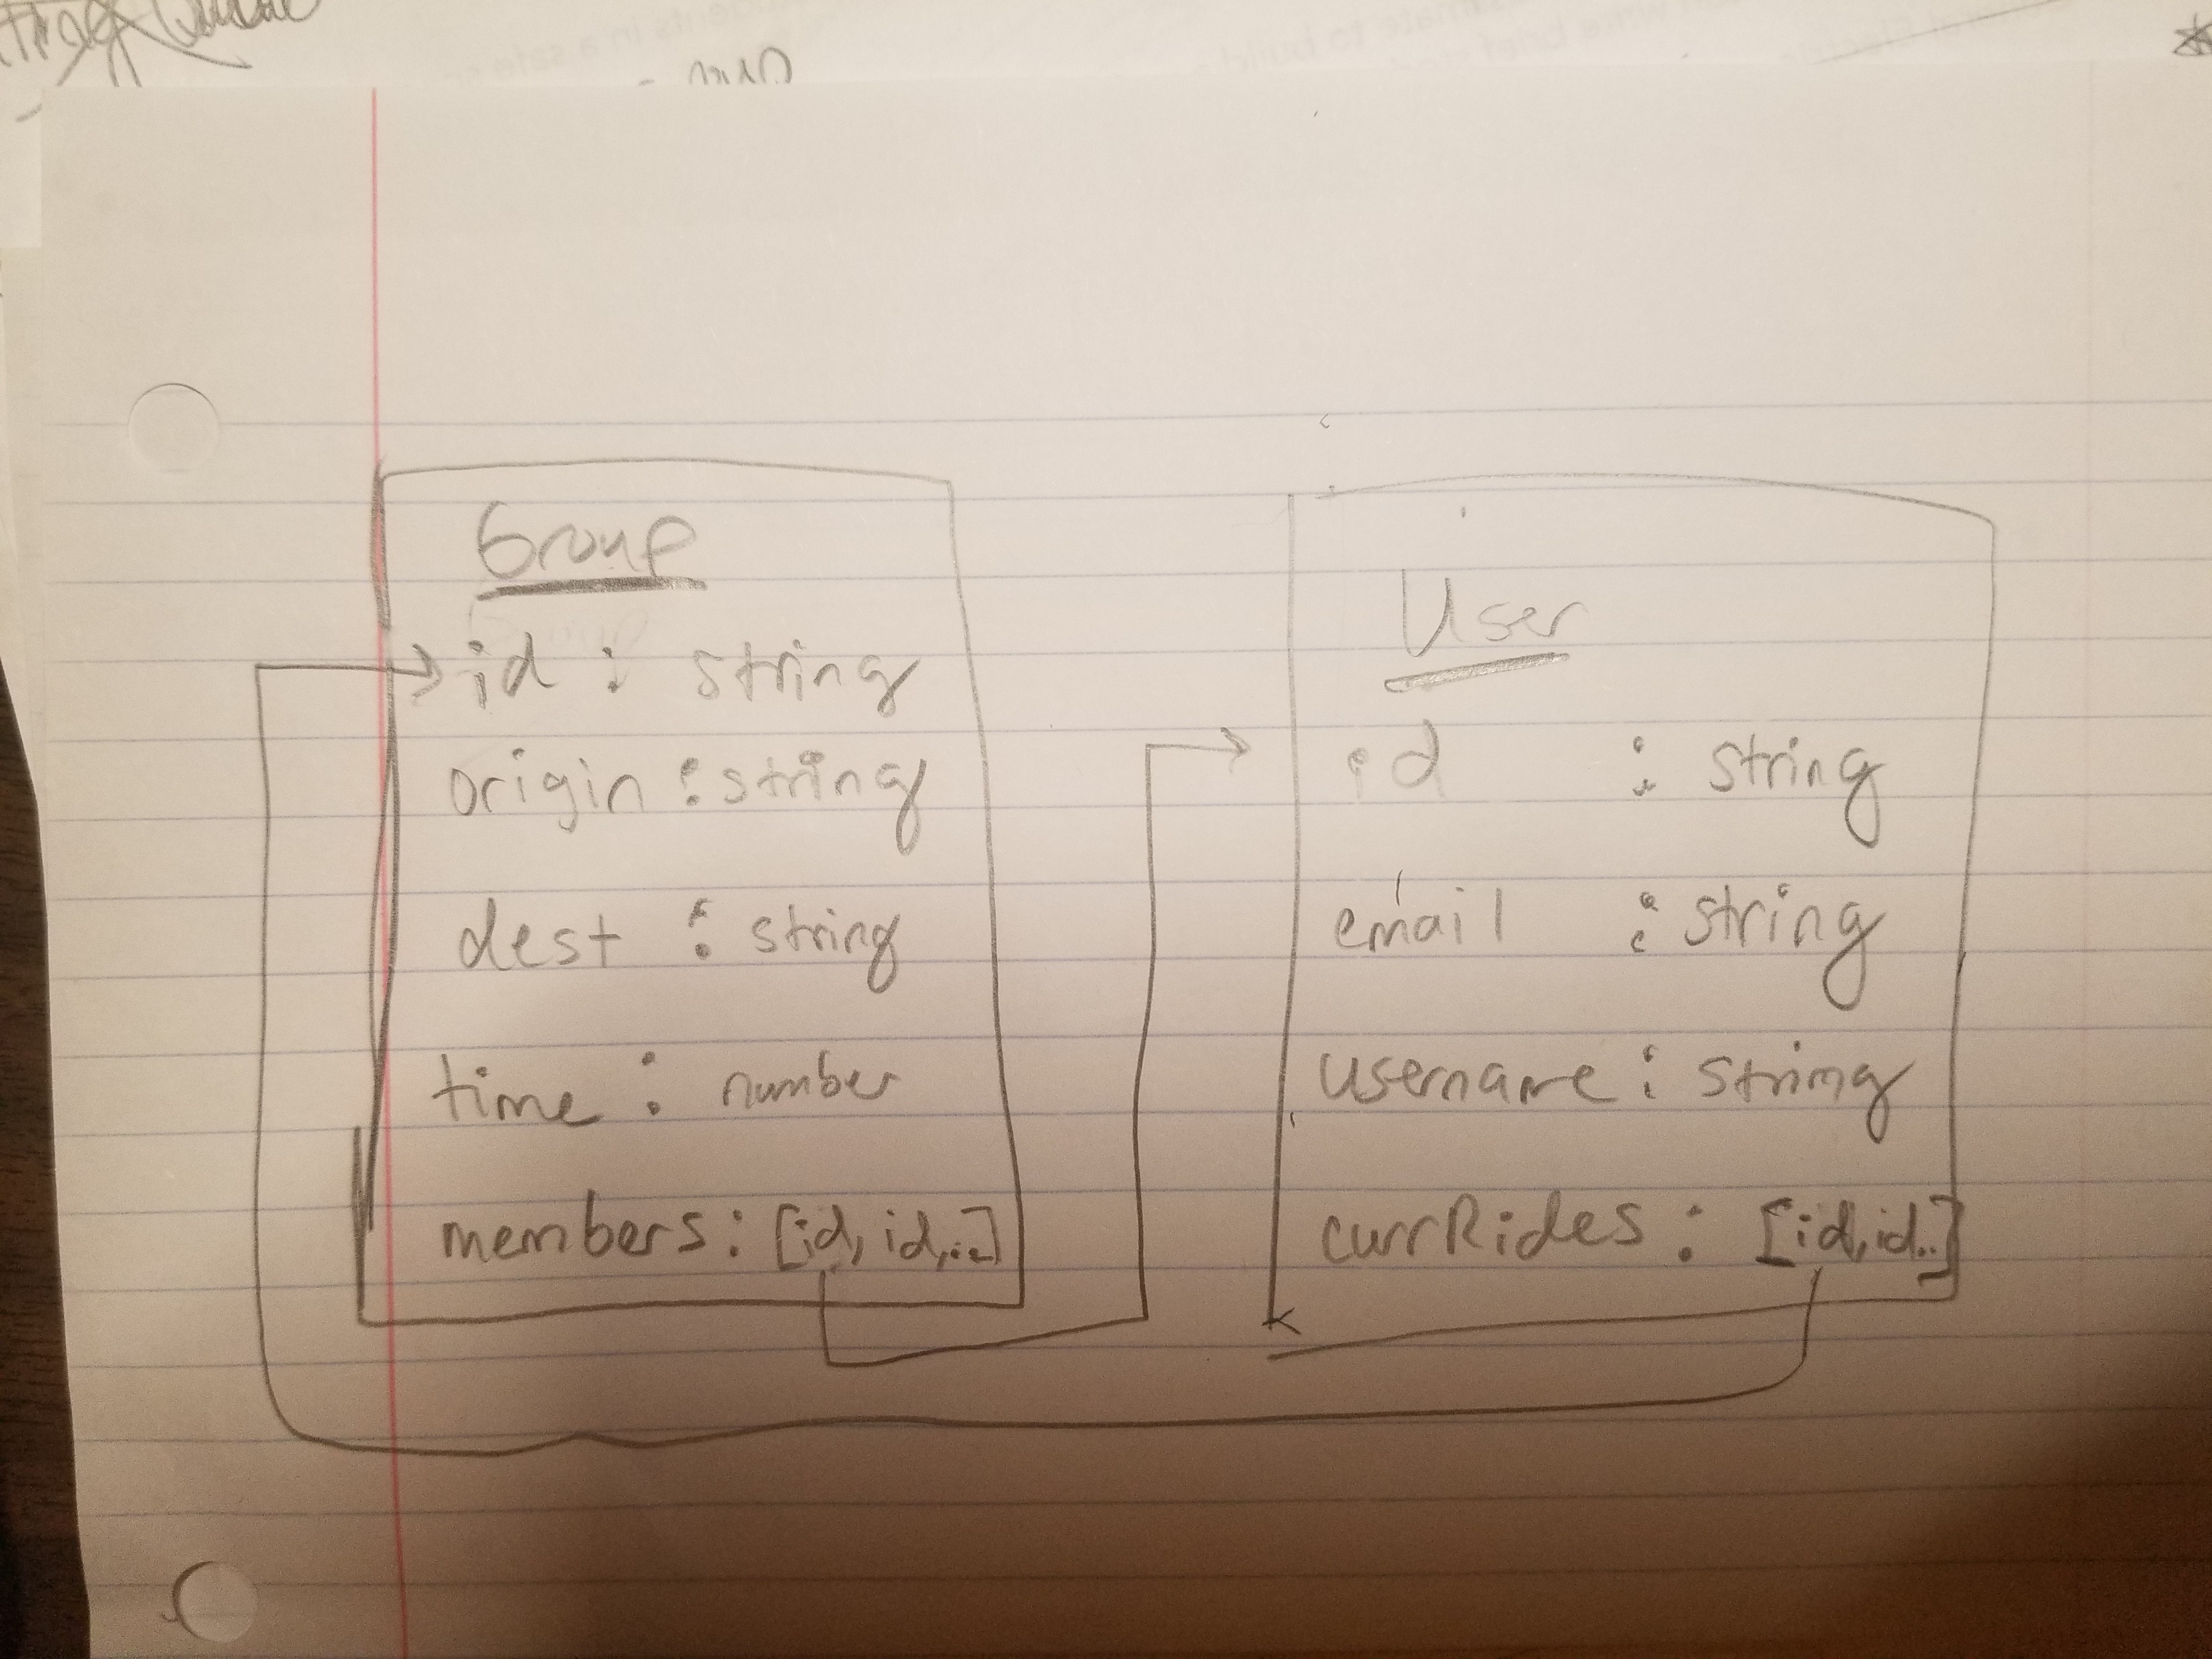 Group
id : string
origin : string
dest : string
time : number
members : [id, id, ..]
User
id : string
email : string
username : string
currRides : [id, id..]